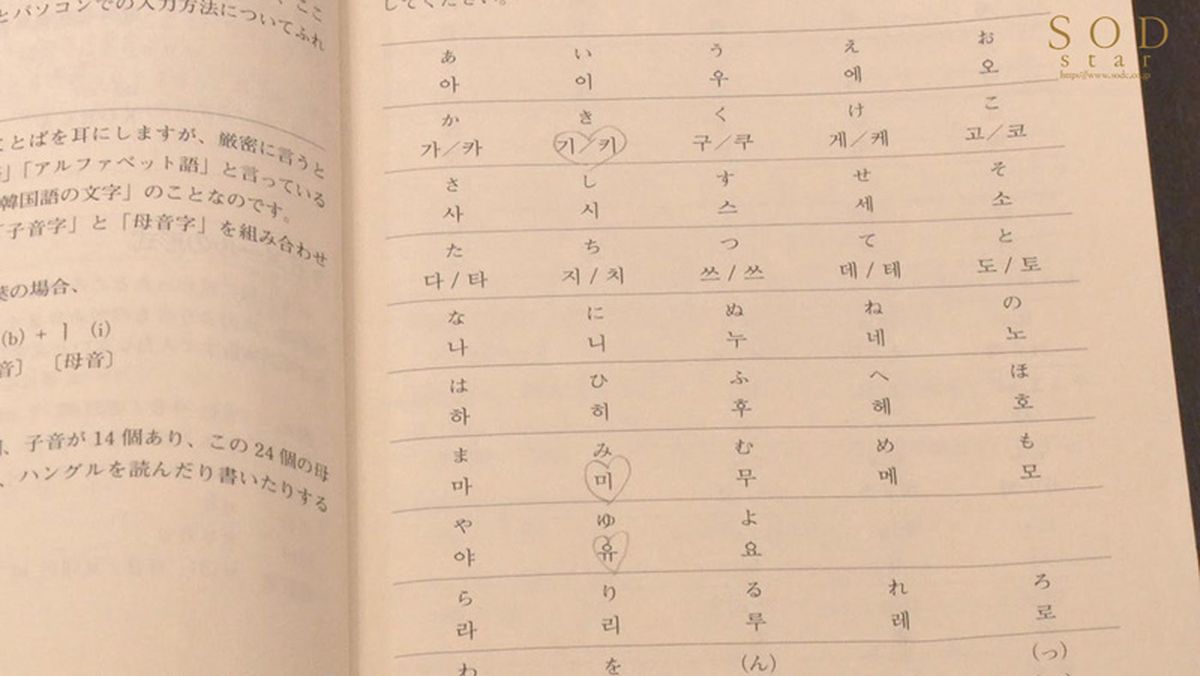 とパソコンでの入力方法についてふれ
ことばを耳にしますが、厳密に言うと
」「アルファベット語」と言っている
韓国語の文字」のことなのです。
「子音字」と「母音字」を組み合わせ
の場合、
(b) + ㅣ (i)
音] 〔母音〕
、子音が 14 個あり、この 24 個の母
、ハングルを読んだり書いたりする
してください。
あ い う え お
아 이 우 에 오
か き く け こ
가/카 기/키 구/쿠 게/케 고/코
さ し す せ そ
사 시 스 세 소
た ち つ て と
다/타 지/치 쓰/쓰 데/테 도/토
な に ぬ ね の
나 니 누 네 노
は ひ ふ へ ほ
하 히 후 헤 호
ま み む め も
마 미 무 메 모
や ゆ よ
야 유 요
ら り る れ ろ
라 리 루 레 로
わ を (ん) (っ)
SOD
star
http://www.sodc.co.jp